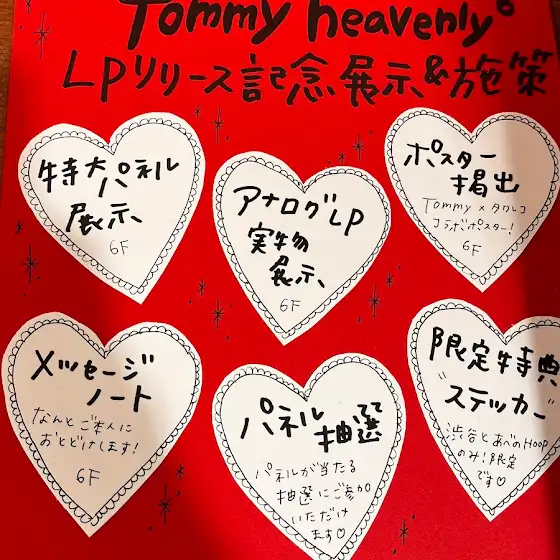 Tommy heavenly6
LPリリース記念展示&施策
特大パネル
展示
6F
アナログLP
実物
展示
6F
ポスター
掲出
Tommy×タワレコ
コラボポスター!
6F
メッセージ
ノート
なんとご本人に
おとどけします!
6F
パネル
抽選
パネルが当たる
抽選にご参加
いただけ
ます♡
限定特典
"ステッカー"
渋谷とあべのHoop
のみ!限定
です♡